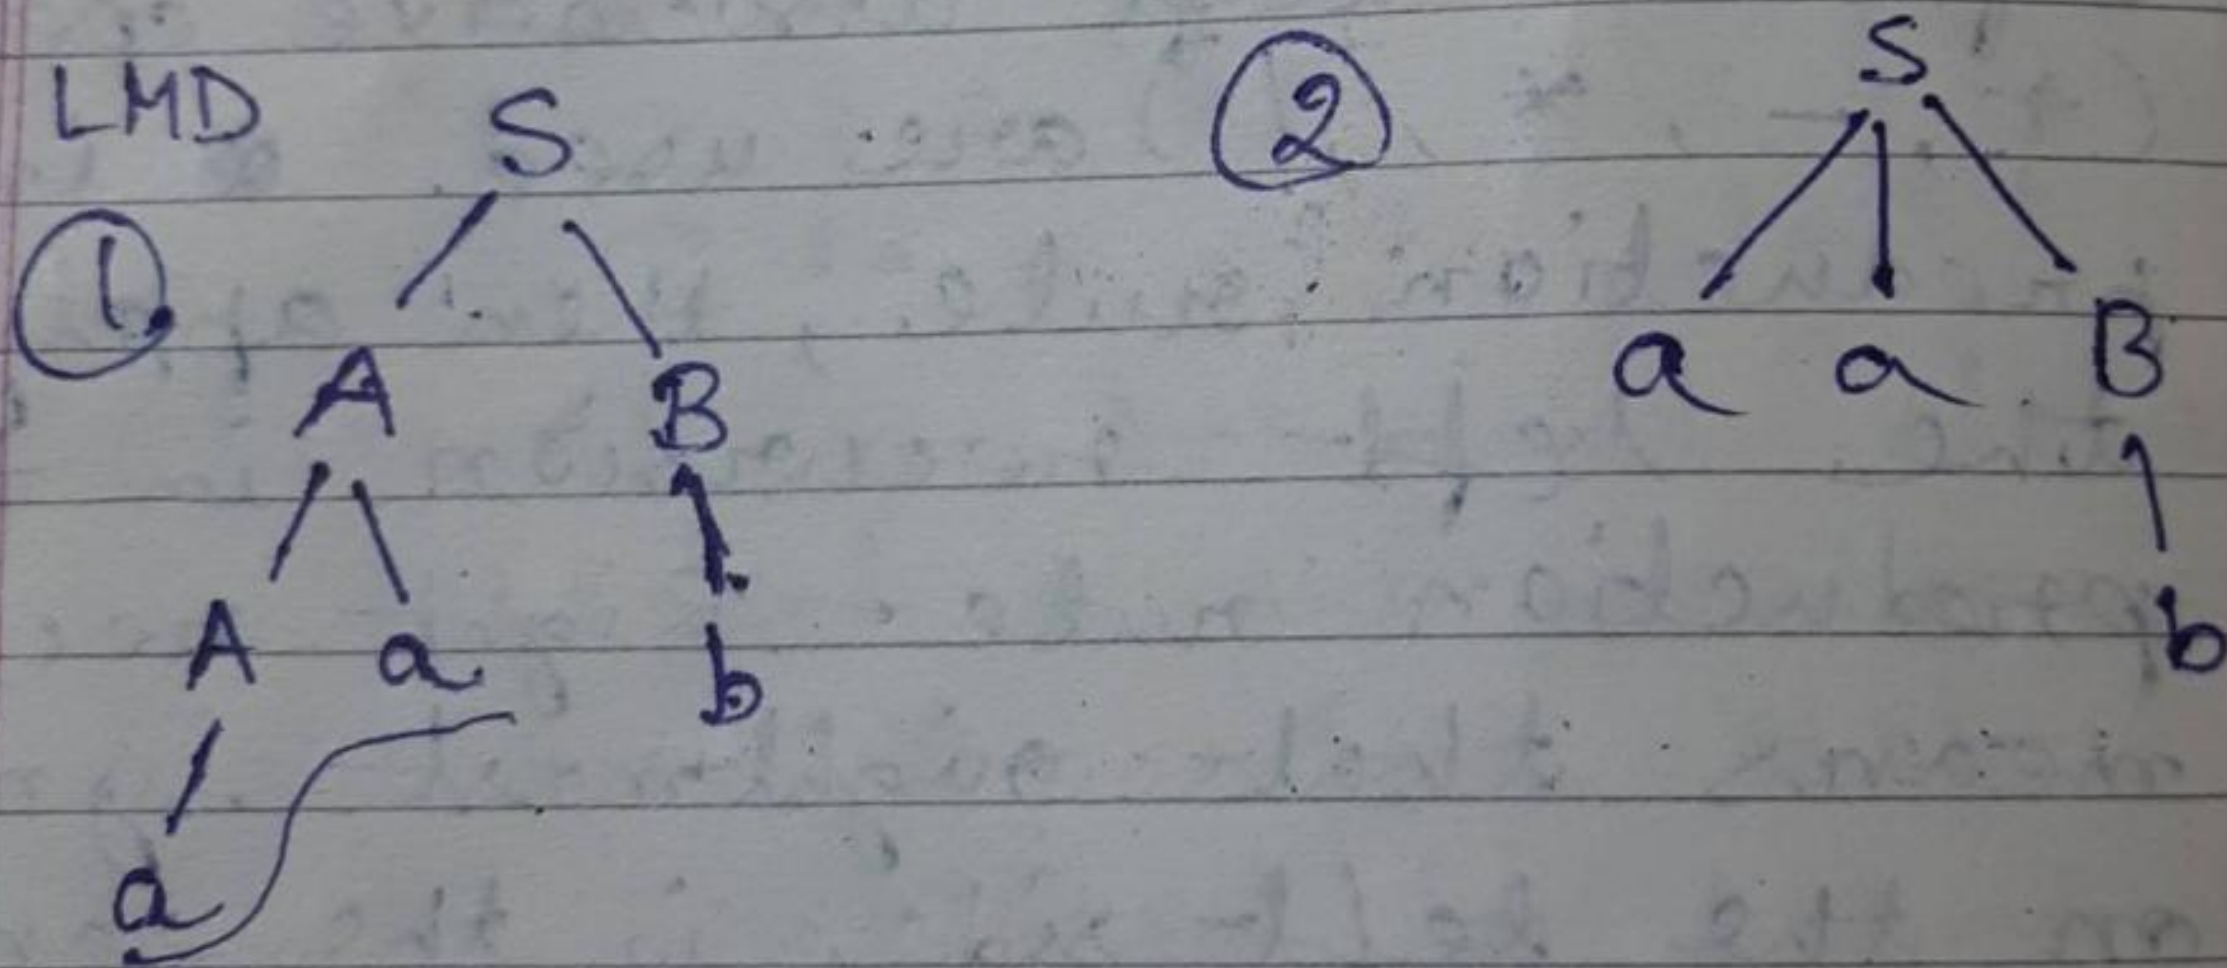 LMD
1.
S
A B
A a b
a
2
S
a a B
b